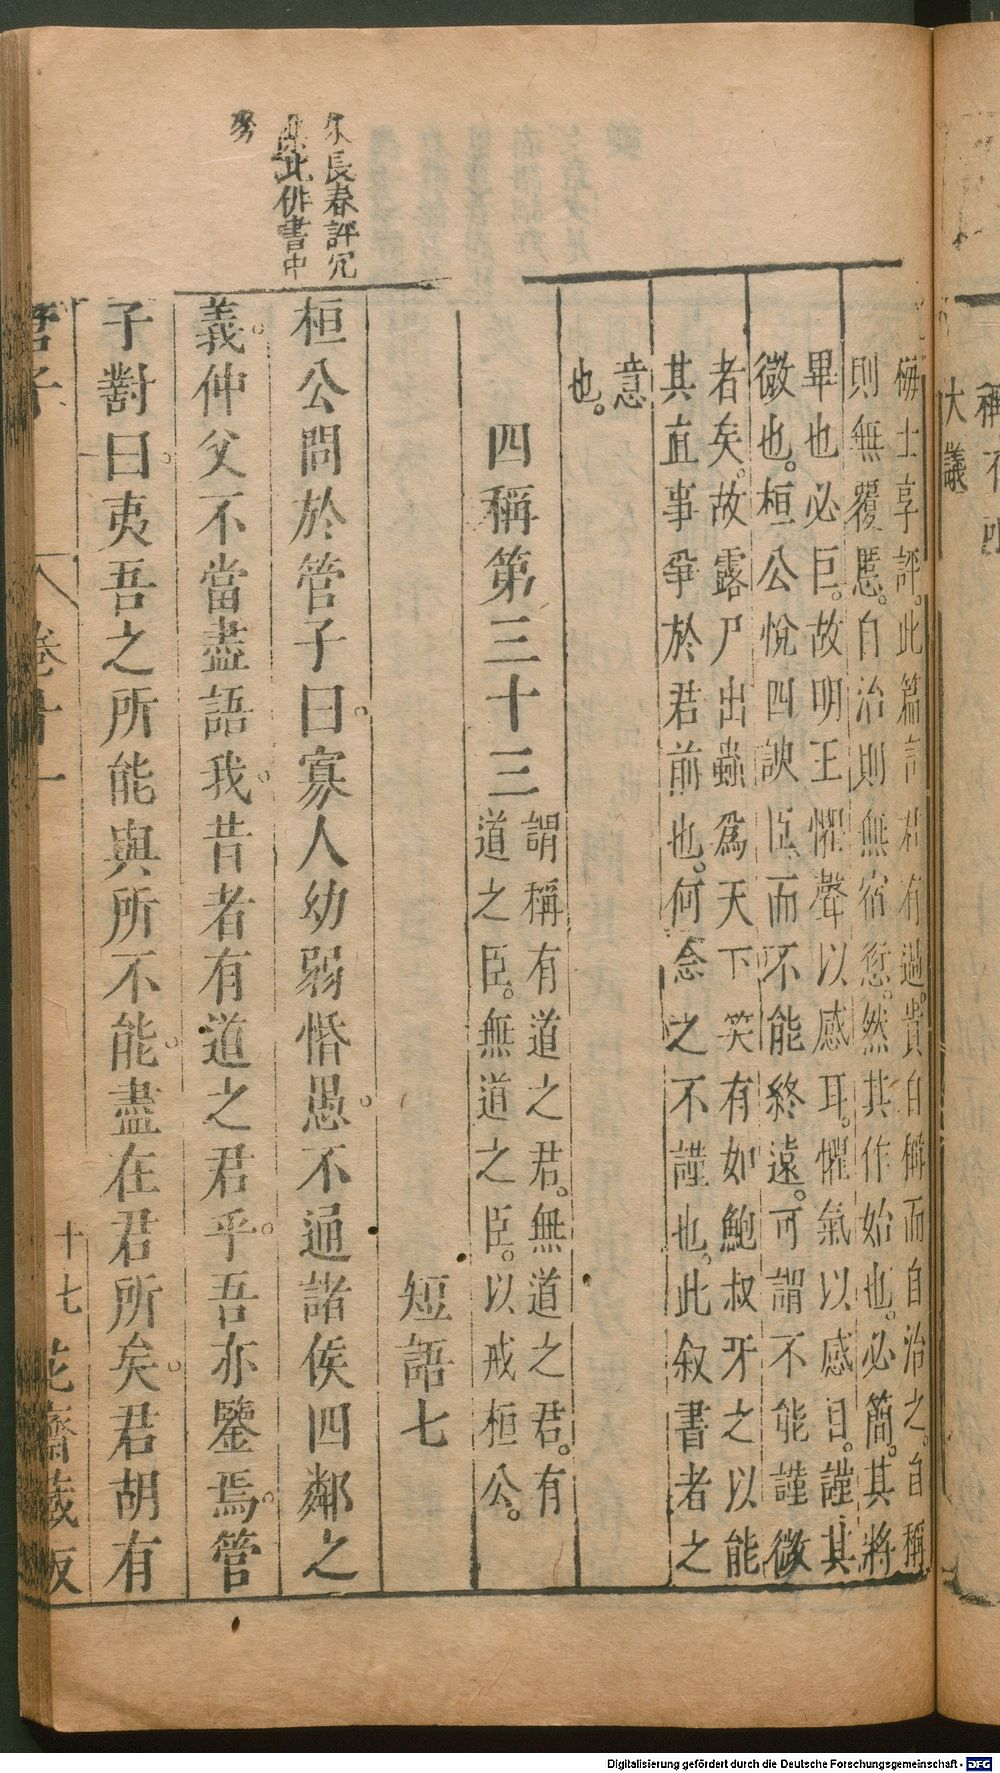 梅士享評。此篇言君有過。貴自稱而自治之。自稱
則無覆慝。自治則無宿愆。然其作始也。必簡。其將
畢也必巨。故明王懼聲以感耳。懼氣以感目。謹其
微也。桓公悅四諛臣、而不能終遠。可謂不能謹微
者矣。故露尸出蟲爲天下笑有如鮑叔牙之以能
其直事爭於君前也。何念之不謹也。此叙書者之
意
也。
四稱第三十三
謂稱有道之君。無道之君。有
道之臣。無道之臣。以戒桓公。
短語七
桓公問於管子曰。寡人幼弱惛愚。不通諸侯四鄰之
義。仲父不當盡語我。昔者有道之君乎。吾亦鑒焉。管
子對曰。夷吾之所能與所不能。盡在君所矣。君胡有
朱長春評冗
此俳書中
卷十一
十七
花齋藏板
稱不
大議
Digitalisierung gefördert durch die Deutsche Forschungsgemeinschaft - DFG